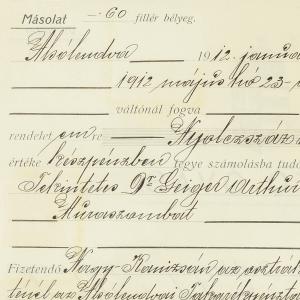 Másolat — 60 fillér bélyeg.
Alsólendva 1912. január
1912 május hó 23-
váltónál fogva
rendelet em re Nyolczszáz
értéke készpénzben tegye számolásba tudó
Tekintetes Dr Geiger Arthur
Muraszombat
Fizetendő Nagy Kanizsán az osztrák
ténél az Alsólendvai Takarékpénzt